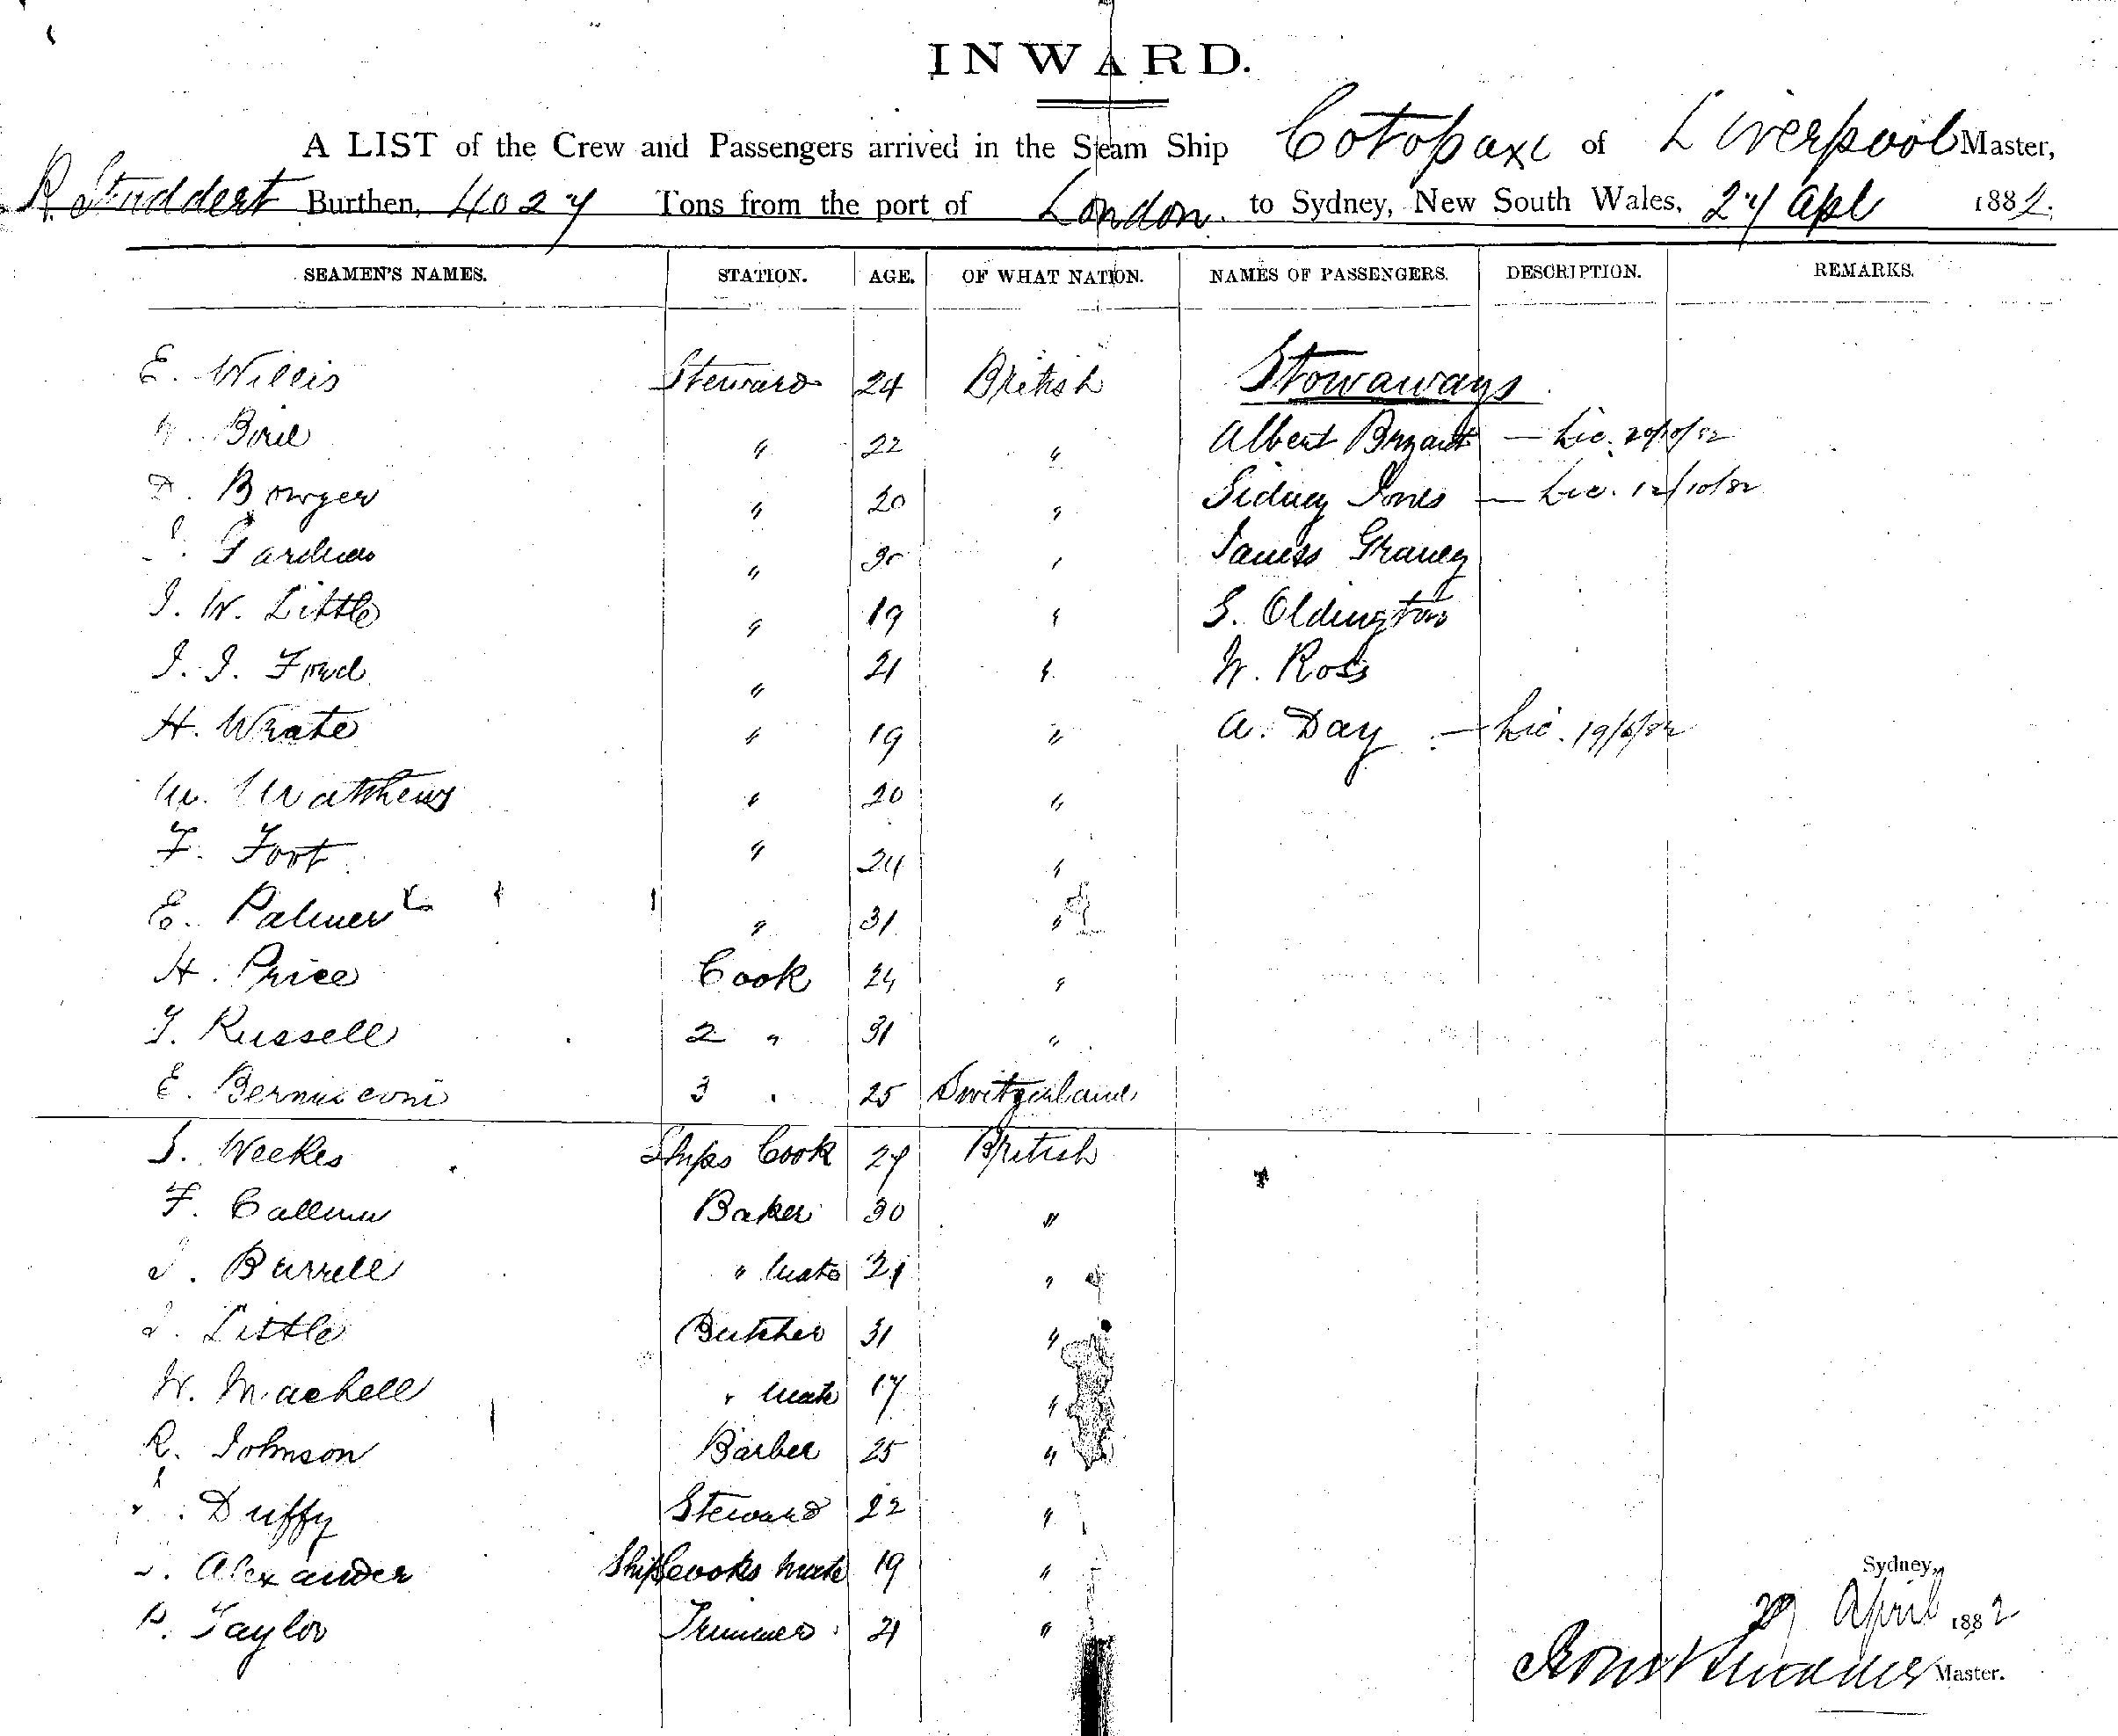 INWARD.
A LIST of the Crew and Passengers arrived in the Steam Ship Cotopaxi of Liverpool Master,
R. Studdert Burthen, 4027 Tons from the port of London. to Sydney, New South Wales, 27 Apl 1882.
SEAMEN'S NAMES. STATION. AGE. OF WHAT NATION. NAMES OF PASSENGERS. DESCRIPTION. REMARKS.
E. Willis Steward 24 British Stowaways
Bird " 22 " Albert Bryant — Lic. 20/10/82
Bowyer " 20 " Sidney Jones — Lic. 12/10/82
Gardner " 30 " James Graney
J. W. Little " 19 " S. Oldington
J. J. Ford " 21 " W. Ross
H. Wrate " 19 " A. Day — Lic. 19/6/82
W. Matthews " 20 "
F. Fort " 24 "
E. Palmer " 31 "
H. Price Cook 24 "
J. Russell 2 " 31 "
E. Bernasconi 3 " 25 Switzerland
S. Weekes Ships Cook 27 British
F. Callum Baker 30 "
J. Burrell " Mate 21 "
J. Little Butcher 31 "
W. Machell " Mate 17 "
R. Johnson Barber 25 "
Duffy Steward 22 "
Alexander Ships Cooks Mate 19 "
Taylor Trimmer 21 "
Sydney,
29 April 1882
Master.